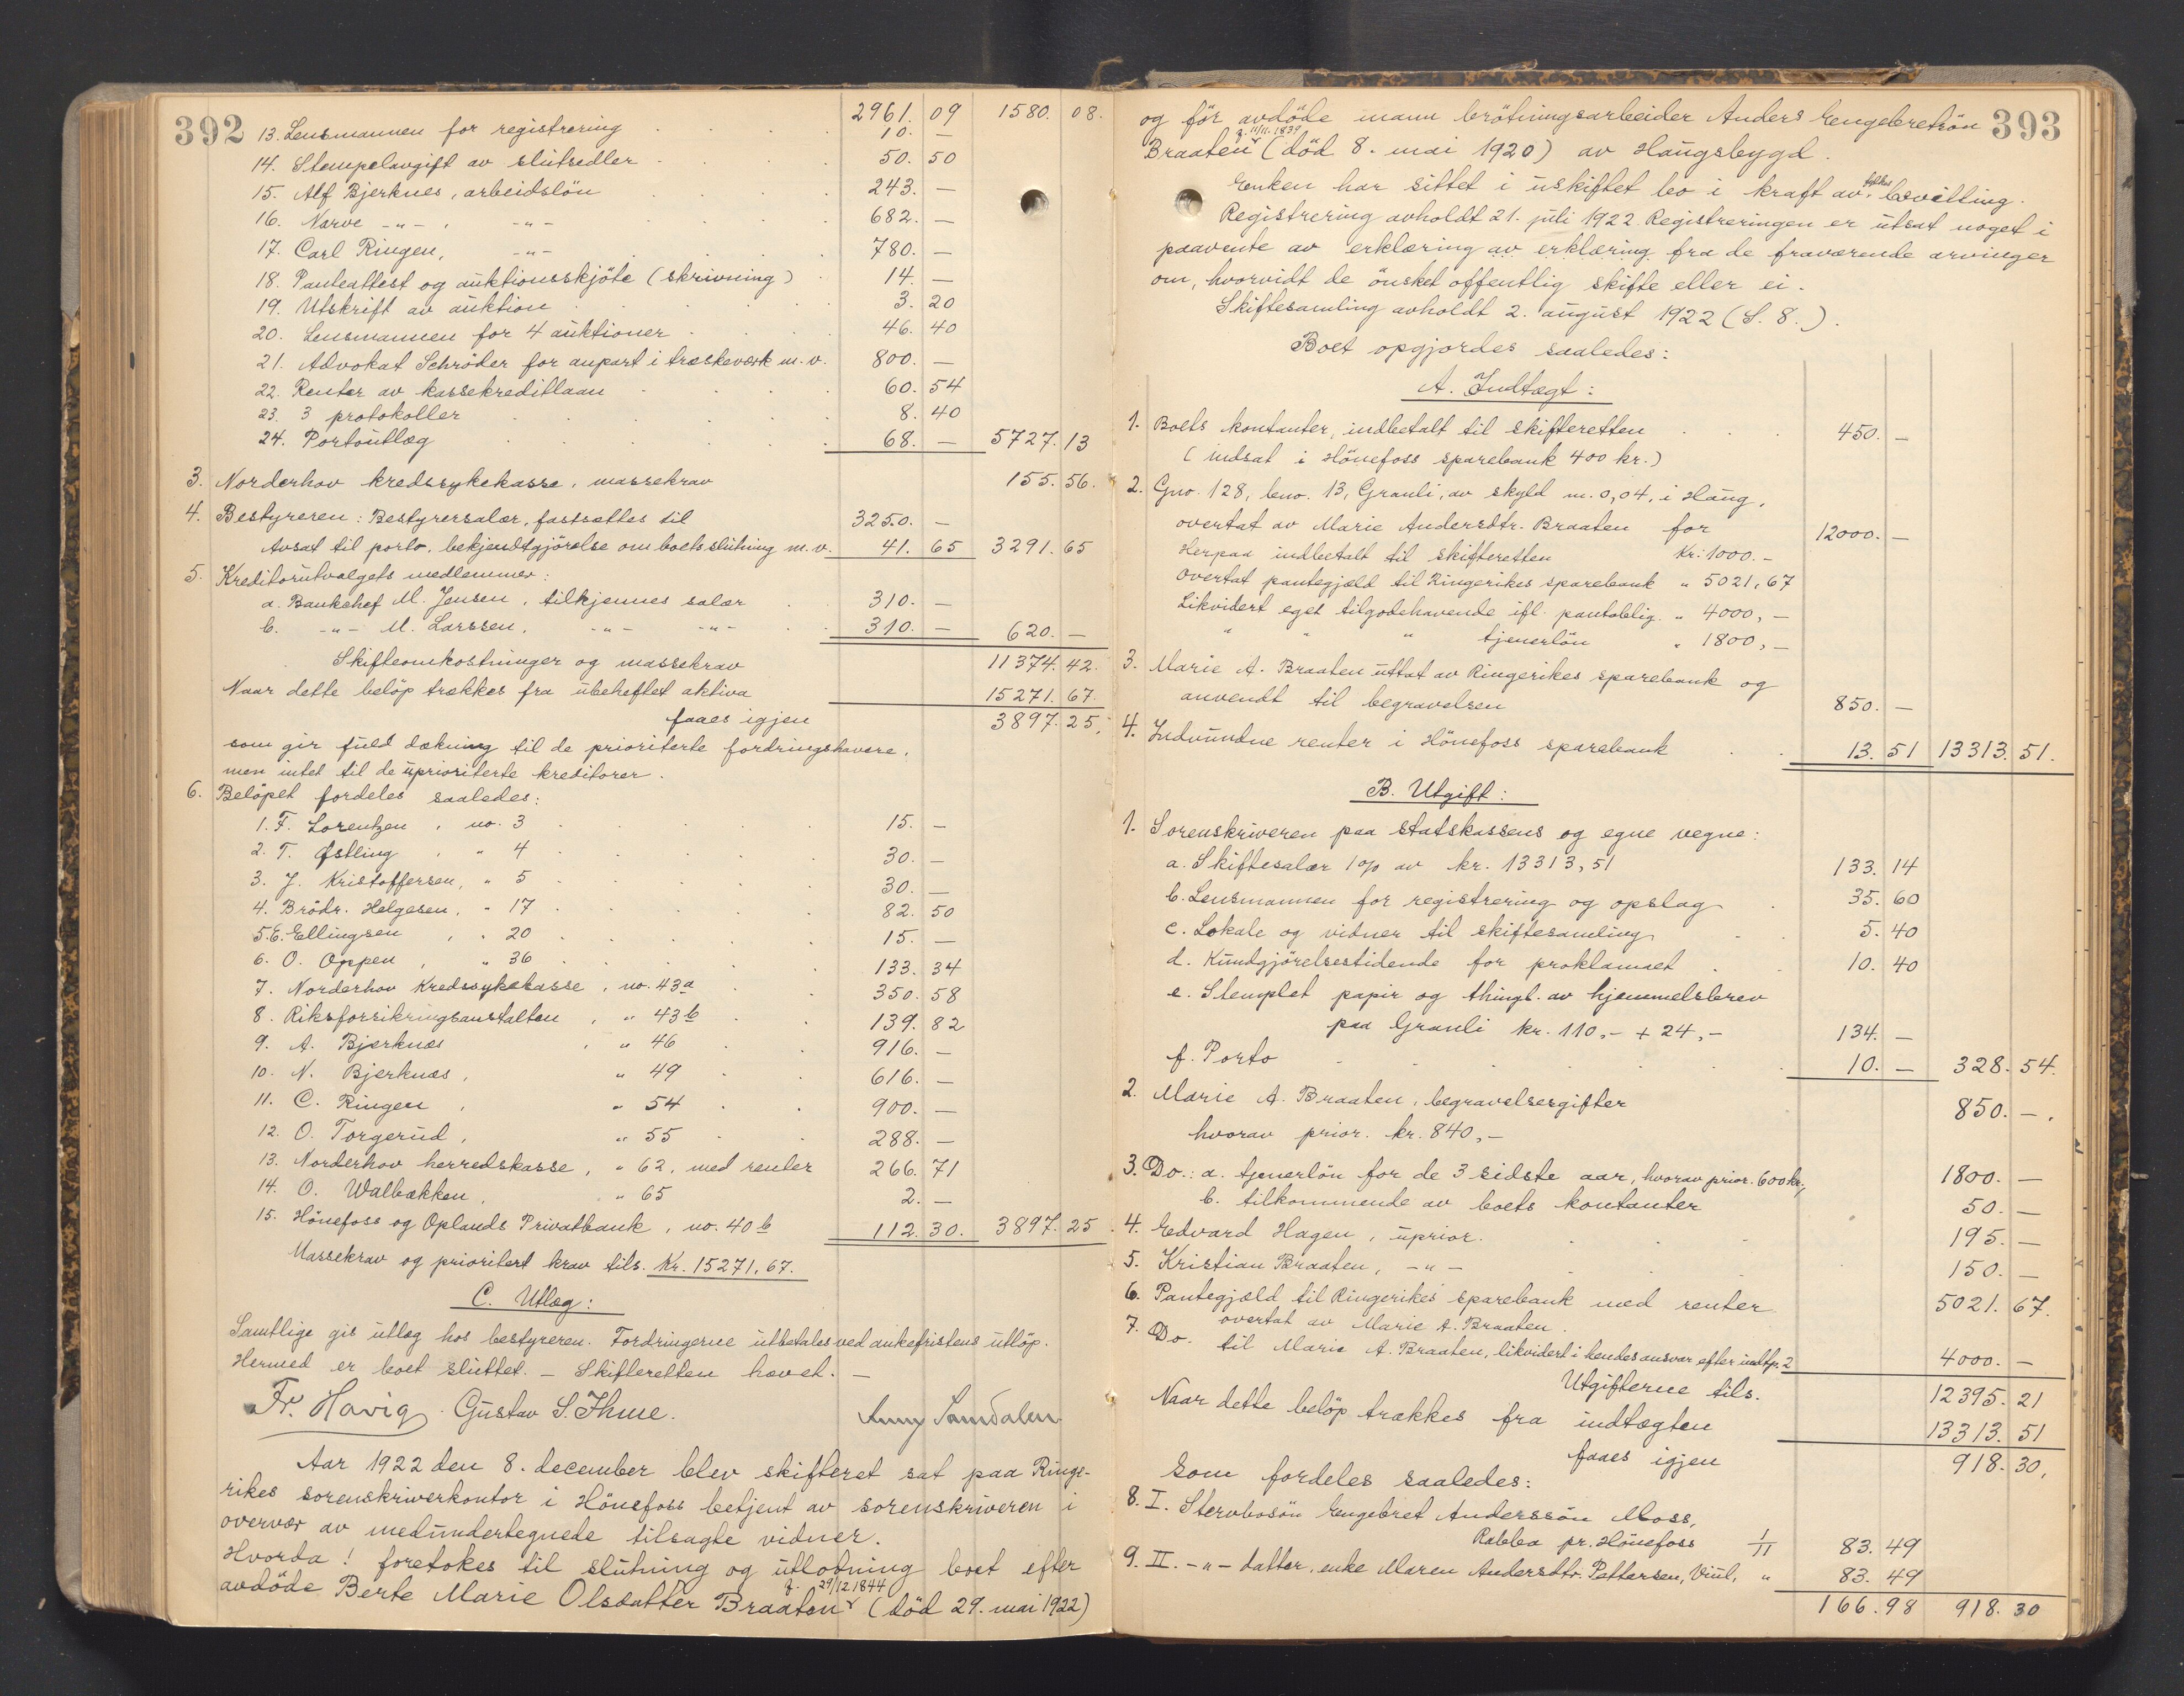 392
2961. 09 1580. 08.
13. Lensmannen for registrering . . . 10. —
14. Stempelavgift av slutsedler . . . 50. 50
15. Alf Bjerknes, arbeidslön . . . 243. —
16. Narve -"- , -"- . . . 682. —
17. Carl Ringen, -"- . . . 780. —
18. Panteattest og auktionsskjöte (skrivning) . 14. —
19. Utskrift av auktion . . . 3. 20
20. Lensmannen for 4 auktioner . . . 46. 40
21. Advokat Schröder for anpart i træskeverk m. v. 800. —
22. Renter av kassekreditlaan . . . 60. 54
23. 3 protokoller . . . 8. 40
24. Portoutlæg . . . 68. — 5727. 13
3. Norderhov kredssykekasse, massekrav 155. 56.
4. Bestyreren: Bestyrersalær, fastsættes til 3250. —
Avsat til porto, bekjendtgjörelse om boets slutning m. v. 41. 65 3291. 65
5. Kreditorutvalgets medlemmer:
a. Bankchef M. Jensen, tilkjennes salær . 310. —
b. -"- M. Larssen, -"- -"- . 310. — 620. —
Skifteomkostninger og massekrav 11374. 42.
Naar dette belöp trækkes fra ubeheftet aktiva 15271. 67.
faaes igjen 3897. 25,
som gir fuld dækning til de prioriterte fordringshavere,
men intet til de uprioriterte kreditorer.
6. Belöpet fordeles saaledes:
1. F. Lorentzen, no. 3 . . . 15. —
2. T. Østling, " 4 . . . 30. —
3. J. Kristoffersen, " 5 . . . 30. —
4. Brödr. Helgesen, " 17 . . . 82. 50
5. E. Ellingsen, " 20 . . . 15. —
6. O. Oppen, " 36 . . . 133. 34
7. Norderhov Kredssykekasse, no. 43a . . 350. 58
8. Riksforsikringsanstalten, " 43b . . 139. 82
9. A. Bjerknæs, " 46 . . 916. —
10. N. Bjerknæs, " 49 . . 616. —
11. C. Ringen, " 54 . . 900. —
12. O. Torgerud, " 55 . . 288. —
13. Norderhov herredskasse, " 62, med renter 266. 71
14. O. Walbækken, " 65 2. —
15. Hönefoss og Oplands Privatbank, no. 40b 112. 30. 3897. 25
Massekrav og prioritert krav tils. Kr. 15271,67.
C. Utlæg:
Samtlige gis utlæg hos bestyreren. Fordringerne utbetales ved ankefristens utlöp.
Hermed er boet sluttet. — Skifteretten hævet. —
Fr. Havig. Gustav S. Ihme. Anny Samdalen
Aar 1922 den 8. december blev skifteret sat paa Ringe-
rikes sorenskriverkontor i Hönefoss betjent av sorenskriveren i
overvær av medundertegnede tilsagte vidner.
Hvorda! foretokes til slutning og utlodning boet efter
f. 29/12 1844
avdöde Berte Marie Olsdatter Braaten (död 29. mai 1922)
393
og för avdöde mann brötningsarbeider Anders Engebretsön
f. 11/11. 1839
Braaten (död 8. mai 1920) av Haugsbygd.
Enken har sittet i uskiftet bo i kraft av fylkes bevilling.
Registrering avholdt 21. juli 1922. Registreringen er utsat noget i
paavente av erklæring av erklæring fra de fraværende arvinger
om, hvorvidt de önsket offentlig skifte eller ei.
Skiftesamling avholdt 2. august 1922 (S. 8.).
Boet opgjordes saaledes:
A. Indtægt:
1. Boets kontanter, indbetalt til skifteretten . . . 450. —
(indsat i Hönefoss sparebank 400 kr.)
2. Gno. 128, bno. 13, Granli, av skyld m. 0,04, i Haug,
overtat av Marie Andersdtr. Braaten for 12000. —
Herpaa indbetalt til skifteretten Kr. 1000.-
Overtat pantegjæld til Ringerikes sparebank " 5021,67
Likvidert eget tilgodehavende ifl. pantoblig. " 4000,—
" " " tjenerlön " 1800,—
3. Marie A. Braaten uttat av Ringerikes sparebank og
anvendt til begravelsen 850. —
4. Indvundne renter i Hönefoss sparebank . . 13. 51 13313. 51.
B. Utgift:
1. Sorenskriveren paa statskassens og egne vegne:
a. Skiftesalær 1% av kr. 13313,51 133. 14
b. Lensmannen for registrering og opslag . 35. 60
c. Lokale og vidner til skiftesamling . . 5. 40
d. Kundgjörelsestidende for proklamaet . . 10. 40
e. Stemplet papir og thingl. av hjemmelsbrev
paa Granli kr. 110,- + 24,- 134. —
f. Porto . . . 10. — 328. 54.
2. Marie A. Braaten, begravelsesgifter 850. —.
hvorav prior. kr. 840,—
3. Do.: a. tjenerlön for de 3 sidste aar, hvorav prior. 600 kr., 1800. —
b. tilkommende av boets kontanter 50. —
4. Edvard Hagen, uprior. . . . 195. —
5. Kristian Braaten, -"- . . . 150. —
6. Pantegjæld til Ringerikes sparebank med renter 5021. 67.
overtat av Marie A. Braaten.
7. Do. til Marie A. Braaten, likvidert i hendes ansvar efter indtp. 2 4000. —
Utgifterne tils. 12395. 21
Naar dette belöp trækkes fra indtægten 13313. 51
faaes igjen 918. 30,
som fordeles saaledes:
8. I. Stervbosön Engebret Anderssön Moss,
Rabba pr. Hönefoss 1/11 83. 49
9. II. -"- datter, enke Maren Andersdtr. Pettersen, Viul, " 83. 49
166. 98 918. 30